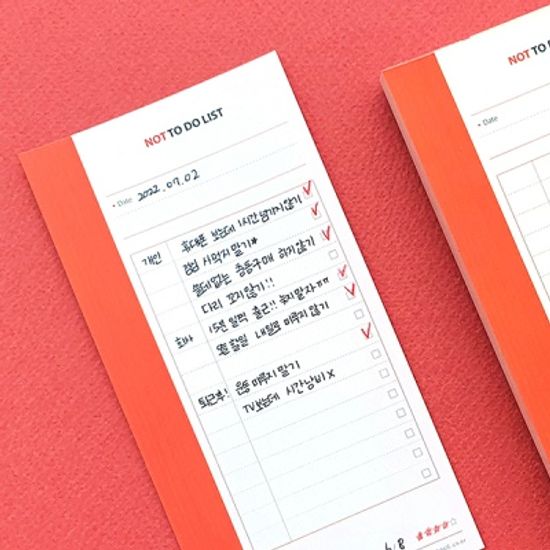 NOT TO DO LIST
• Date 2022.07.02
개인 휴대폰 보는데 1시간 넘기지 않기
간식 시먹지 말기★
쓸데없는 충동구매 하지않기
다리 꼬지 않기!!
회사 15분 일찍 출근!! 늦지말자ㅠㅠ
오늘 할일 내일로 미루지 않기
퇴근후! 운동 미루지 말기
TV보는데 시간낭비 X
/8 ★★★★☆
NOT TO D
• Date